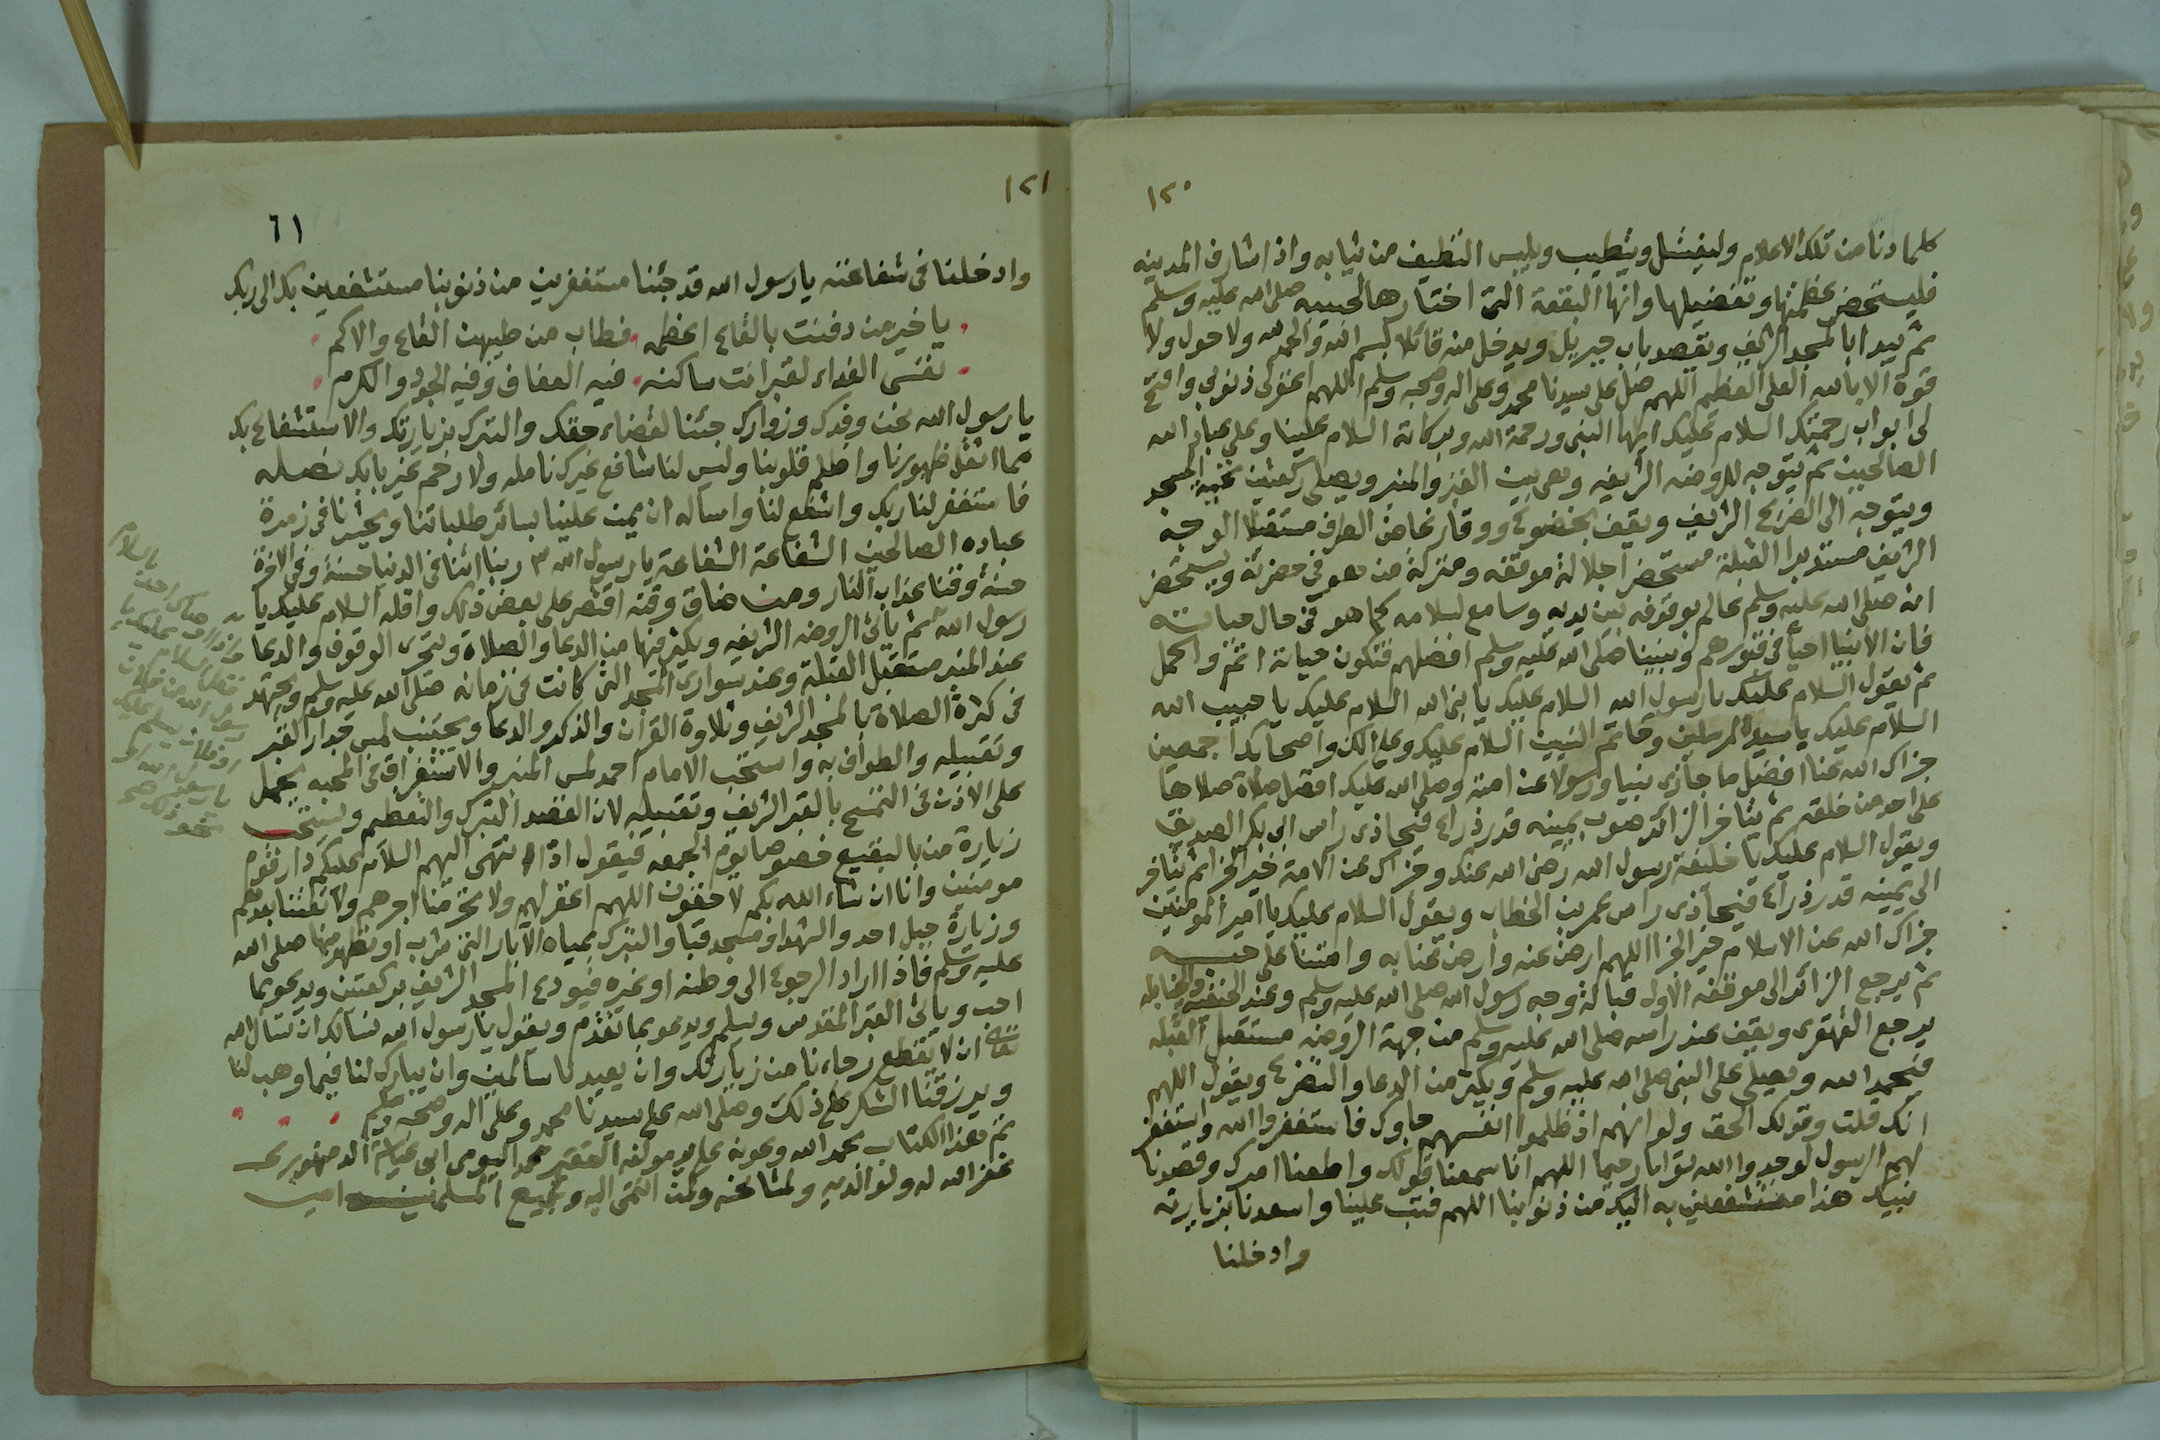 ١٢٠
كلما دنا من تلك الاعلام وليغتسل ويتطيب ويلبس النظيف من ثيابه واذا شارف المدينه
فليستحضر عظمتها وتفضيلها وانها البقعة التى اختارها لحبيبه صلى الله عليه وسلم
ثم يبدا بالمسجد الشريف ويقصد باب جبريل ويدخل منه قائلا بسم الله والحمد لله ولا حول ولا
قوة الا بالله العلى العظيم اللهم صل على سيدنا محمد وعلى اله وصحبه وسلم اللهم اغفر لى ذنوبى وافتح
لى ابواب رحمتك السلام عليك ايها النبى ورحمة الله وبركاته السلام علينا وعلى عباد الله
الصالحين ثم يتوجه للروضه الشريفه وهى بين القبر والمنبر ويصلى ركعتين تحية المسجد
ويتوجه الى الضريح الشريف ويقف بخضوع ووقار غاض الطرف مستقبلا الوجه
الشريف مستدبرا القبلة مستحضرا جلالة موقفه ومنزلة من هو فى حضرته ويستحضر
انه صلى الله عليه وسلم عالم بوقوفه بين يديه وسامع لسلامه كما هو فى حال حياته
فان الانبيا احيأ فى قبورهم ونبينا صلى الله عليه وسلم افضلهم فتكون حياته اتم واكمل
ثم يقول السلام عليك يا رسول الله السلام عليك يا نبى الله السلام عليك يا حبيب الله
السلام عليك يا سيد المرسلين وخاتم النبيين السلام عليك وعلى الك واصحابك اجمعين
جزاك الله عنا افضل ما جازى نبيا ورسولا عن امته وصلى الله عليك افضل صلاة صلاها
على احد من خلقه ثم يتاخر الزائد صوب يمينه قدر ذراع فيحاذى راس ابى بكر الصديق
ويقول السلام عليك يا خليفة رسول الله رضى الله عنك وجزاك عن الامة خير الجزا ثم يتاخر
الى يمينه قدر ذراع فيحاذى راس عمر بن الخطاب ويقول السلام عليك يا امير المومنين
جزاك الله عن الاسلام خير الجزا اللهم ارض عنه وارض عنا به وامتنا على حبه
ثم يرجع الزائر الى موقفه الاول قبالة وجه رسول الله صلى الله عليه وسلم وعند الحنفيه والحنابله
يرجع القهقرى ويقف عند راسه صلى الله عليه وسلم من جهة الروضه مستقبل القبله
فيحمد الله ويصلى على النبى صلى الله عليه وسلم ويكثر من الدعا والتضرع ويقول اللهم
انك قلت وقولك الحق ولو انهم اذ ظلموا انفسهم جاوك فاستغفروا الله واستغفر
لهم الرسول لوجدوا الله توابا رحيما اللهم انا سمعنا قولك واطعنا امرك وقصدنا
نبيك هذا مستشفعين به اليك من ذنوبنا اللهم فتب علينا واسعدنا بزيارته
وادخلنا
١٢١
٦١
وادخلنا فى شفاعته يا رسول الله قد جئنا مستغفرين من ذنوبنا مستشفعين بك الى ربك
يا خير من دفنت بالقاع اعظمه فطاب من طيبهن القاع والاكم
نفسى الفداء لقبر انت ساكنه فيه العفاف وفيه الجود والكرم
يا رسول الله نحن وفدك وزوارك جئنا لقضاء حقك والتبرك بزيارتك والاستشفاع بك
مما اثقل ظهورنا واظلم قلوبنا وليس لنا شافع غيرك نامله ولا رحم غير بابك نصله
فاستغفر لنا ربك واشفع لنا واساله ان يمن علينا بسائر طلباتنا ويحشرنا فى زمرة
عباده الصالحين الشفاعة الشفاعة يا رسول الله ٣ ربنا اتنا فى الدنيا حسنة وفى الاخرة
حسنة وقنا عذاب النار ومن ضاق وقته اقتصر على بعض ذلك واقله السلام عليك يا
رسول الله ثم يأتى الروضه الشريفه ويكثر فيها من الدعا والصلاة ويتحرى الوقوف والدعا
عند المنبر مستقبل القبلة وعند سوارى المسجد التى كانت فى زمانه صلى الله عليه وسلم ويجتهد
فى كثرة الصلاة بالمسجد الشريف وتلاوة القرآن والذكر والدعا ويجتنب لمس جدار القبر
وتقبيله والطواف به واستحب الامام احمد لمس المنبر والاستغراق فى المحبه يحمل
على الاذن فى التمسح بالقبر الشريف وتقبيله لان القصد التبرك والتعظيم ويستحب
زيارة من بالبقيع خصوصا يوم الجمعه فيقول اذا انتهى اليهم السلام عليكم دار قوم
مومنين وانا ان شاء الله بكم لاحقون اللهم اغفر لهم ولا تحرمنا اجرهم ولا تفتنا بعدهم
وزيارة جبل احد والشهدا ومسجد قبا والتبرك بمياه الآبار التى شرب او تطهر منها صلى الله
عليه وسلم فاذا اراد الرجوع الى وطنه او غيره فيودع المسجد الشريف بركعتين ويدعو بما
احب وياتى القبر المقدس ويسلم ويدعو بما تقدم ويقول يا رسول الله نسالك ان تسال الله
تعالى ان لا يقطع رجاءنا من زيارتك وان يعيدنا سالمين وان يبارك لنا فيما وهب لنا
ويرزقنا الشكر على ذلك وصلى الله على سيدنا محمد وعلى اله وصحبه وسلم
تم هذا الكتاب بحمد الله وعونه على يد مولفه الفقير محمد البيومى ابى عياشة الدمنهورى
غفر الله له ولوالديه ولمشائخه ولمن انتمى اليه ولجميع المسلمين امين